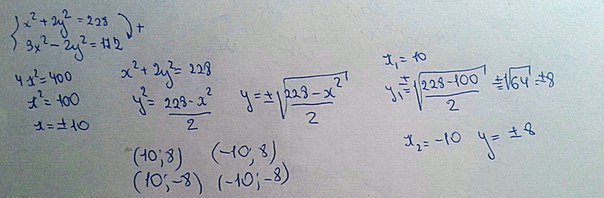 { x² + 2y² = 228
3x² − 2y² = 172 ) +
4x² = 400
x² = 100
x = ±10
x² + 2y² = 228
y² = (228 − x²)/2
y = ±√((228 − x²)/2)
x₁ = 10
y₁ = ±√((228 − 100)/2) = ±√64 = ±8
x₂ = −10 y = ±8
(10; 8) (−10; 8)
(10; −8) (−10; −8)